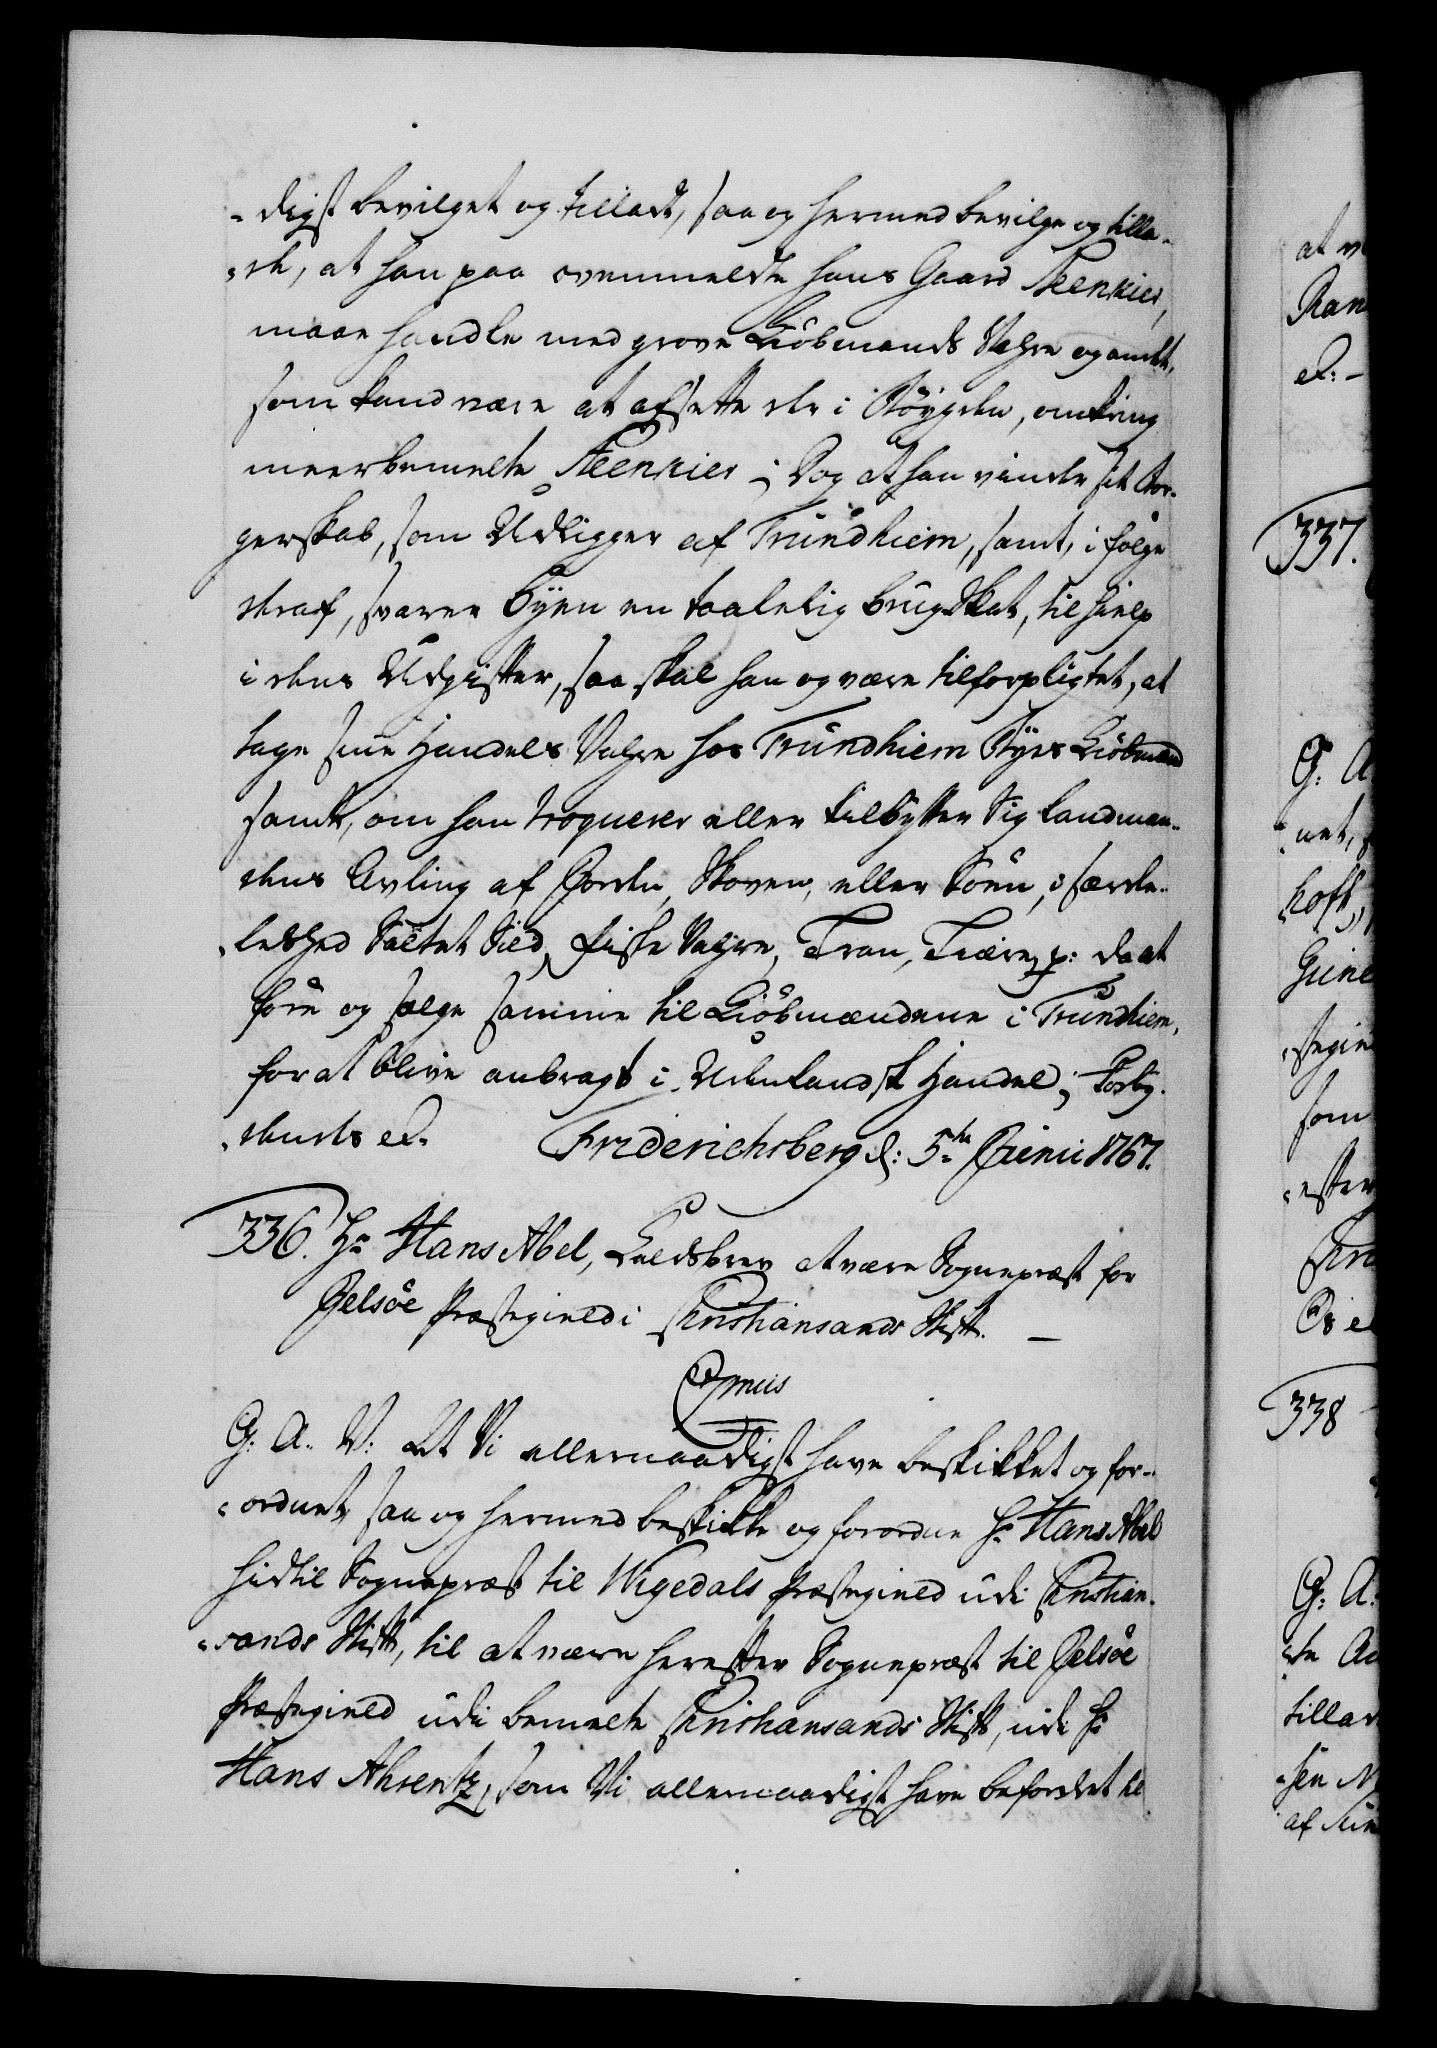 -digst bevilget og tilladt, saa og hermed bevilge og tilla-
-de, at han paa ovenmeldte hans Gaard Steenkier,
maae handle med grove Kiöbmands Vahre og andet,
som kand være at afsette der i Böygden, omkring
meerbemelte Steenkier; Dog at han vinder sit Bor-
gerskab, som Udligger af Trundhiem, samt, i fölge
deraf, svarer Byen en taalelig brug Skat, til hielp
i dens Udgifter, saa skal han og være tilforpligtet, at
tage sine Handels Vahre hos Trundhiem Byes Kiöbmænd
samt, om han troquerer eller tilbytter Sig Landman-
dens Avling af Jorden, Skoven, eller Söen, i særde-
-leshed Saltet Sild, Fiske Vahre, Tran, Tiære p: da at
före og sælge samme til Kiöbmændene i Trundhiem,
for at blive anbragt i Udenlandsk Handel; Forby-
-dendes &. Friderichsberg d: 5te Junii 1767.
336. Hr Hans Abel, Kaldsbrev at være Sognepræst for
Jelsöe Præstegield i Christiansands Stift. —
C7mus
G: A: V: At Vi allernaadigst have beskikket og for-
-ordnet, saa og hermed beskikke og forordne Hr Hans Abel
hidtil Sognepræst til Wigedals Præstegield udi Christian-
-sands Stift, til at være herefter Sognepræst til Jelsöe
Præstegield udi bemelte Christiansands Stift, udi Hr
Hans Ahrentz, som Vi allernaadigst have befordret til
at
Ran
&: -
337.
G: A
net,
hoft,
Giel
som
efter
338
G: A:
de
tillad
sen
af